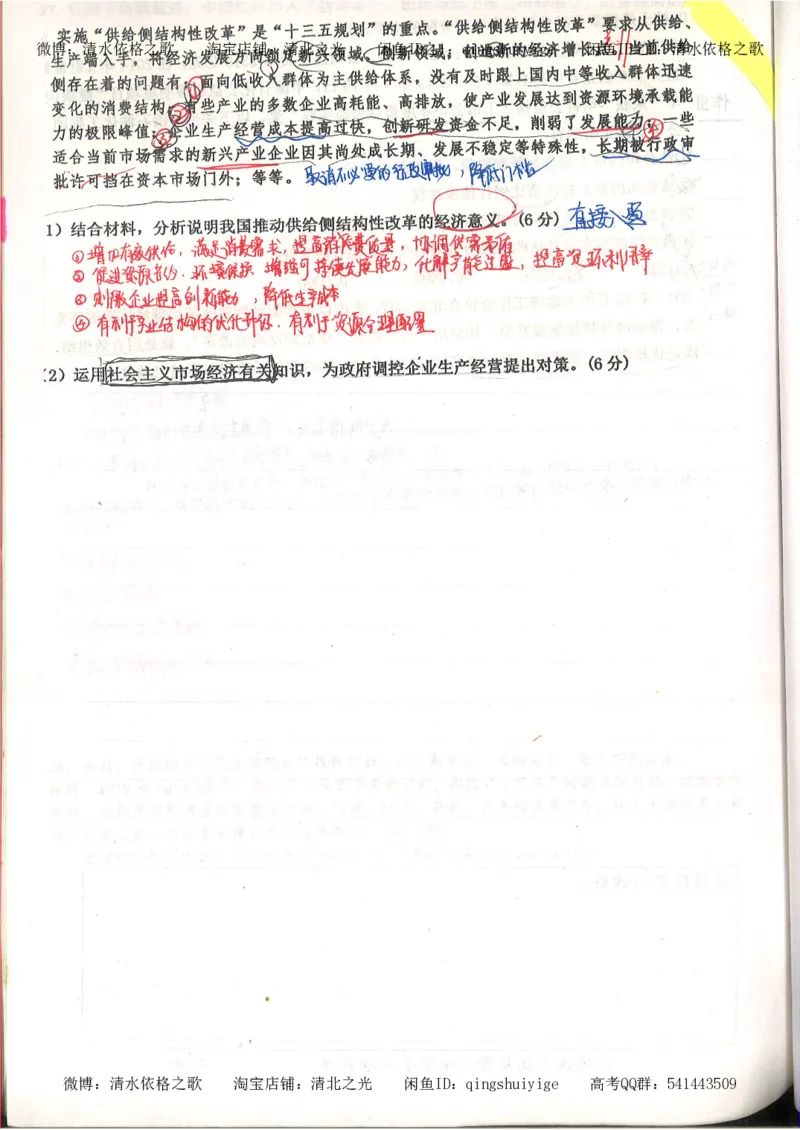 实施“供给侧结构性改革”是“十三五规划”的重点。“供给侧结构性改革”要求从供给、
微博：清水依格之歌 淘宝店铺：清北之光 闲鱼ID：
生产端入手，将经济发展方向锁定新兴领域、创新领域，创造新的经济增长点。当前供给
侧存在着的问题有：①面向低收入群体为主供给体系，没有及时跟上国内中等收入群体迅速
变化的消费结构；②有些产业的多数企业高耗能、高排放，使产业发展达到资源环境承载能
力的极限峰值；③企业生产经营成本提高过快，创新研发资金不足，削弱了发展能力；④一些
适合当前市场需求的新兴产业企业因其尚处成长期、发展不稳定等特殊性，长期被行政审
批许可挡在资本市场门外；等等。 取消不必要的行政审批，降低门槛
1）结合材料，分析说明我国推动供给侧结构性改革的经济意义。（6分） 直接
①增加有效供给，满足消费需求，提高消费质量，协调供需矛盾
②促进资源节约、环境保护，增强可持续发展能力，化解产能过盛，提高资环利用率
③刺激企业提高创新能力，降低生产成本
④有利于产业结构的优化升级，有利于资源合理配置
（2）运用社会主义市场经济有关知识，为政府调控企业生产经营提出对策。（6分）
微博：清水依格之歌 淘宝店铺：清北之光 闲鱼ID：qingshuiyige 高考QQ群：541443509